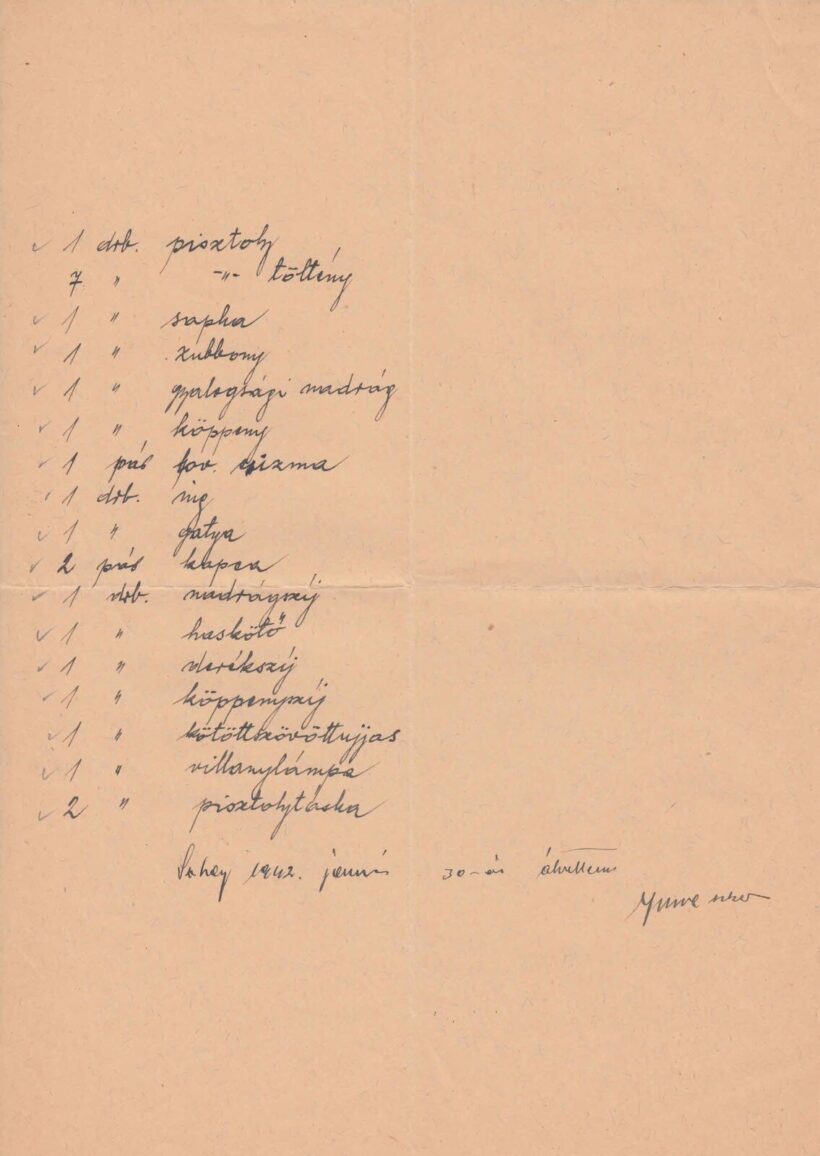 ✓ 1 drb. pisztoly
7 " -"- töltény
✓ 1 " sapka
✓ 1 " zubbony
✓ 1 " gyalogsági nadrág
✓ 1 " köppeny
✓ 1 pár lov. csizma
✓ 1 drb. ing
✓ 1 " gatya
✓ 2 pár kapca
✓ 1 drb. nadrágszíj
✓ 1 " haskötő
✓ 1 " derékszíj
✓ 1 " köppenyszíj
✓ 1 " kötöttszövöttujjas
✓ 1 " villanylámpa
✓ 2 " pisztolytáska
1942. január 30-án átvettem